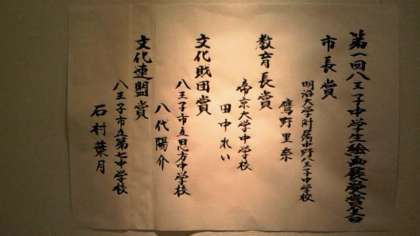 第一回八王子中学生絵画展受賞者
市長賞
明治大学附属中野八王子中学校
鷹野里奈
教育長賞
帝京大学中学校
田中れい
文化財団賞
八王子市立恩方中学校
八代陽介
文化連盟賞
八王子市立第七中学校
石村葉月